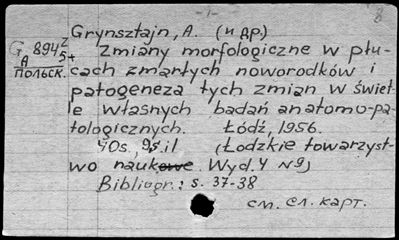 - 1 -
8
Grynsztajn, A. (и др.)
G 894 2
A 5+
польск.
Zmiany morfologiczne w płu-
cach zmarłych noworodków i
patogeneza tych zmian w świet-
le własnych badań anatomo-pa-
tologicznych. Łódź, 1956.
40s., 9s. il (Łodzkie towarzyst-
wo naukowe. Wyd. 4 N9)
Bibliogr.: s. 37-38
см. сл. карт.